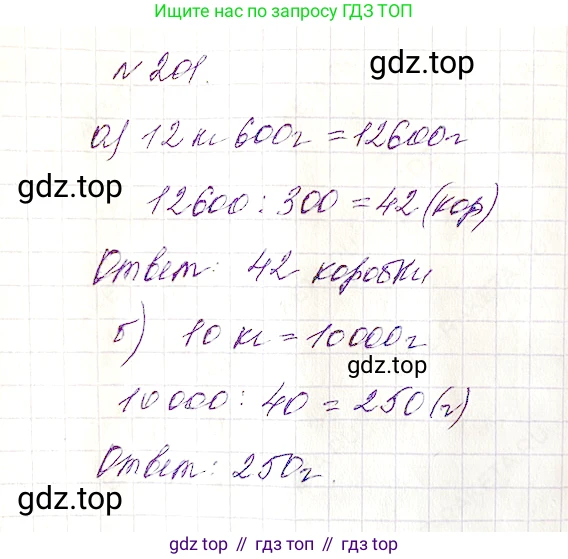 Ищите нас по запросу ГДЗ ТОП
N 201.
gdz.top
а) 12 кг 600г = 12600г
gdz.top
12600 : 300 = 42 (кор)
Ответ: 42 коробки
б) 10 кг = 10000г
gdz.top
10000 : 40 = 250 (г)
Ответ: 250г.
gdz.top
gdz.top // гдз топ // гдз.топ